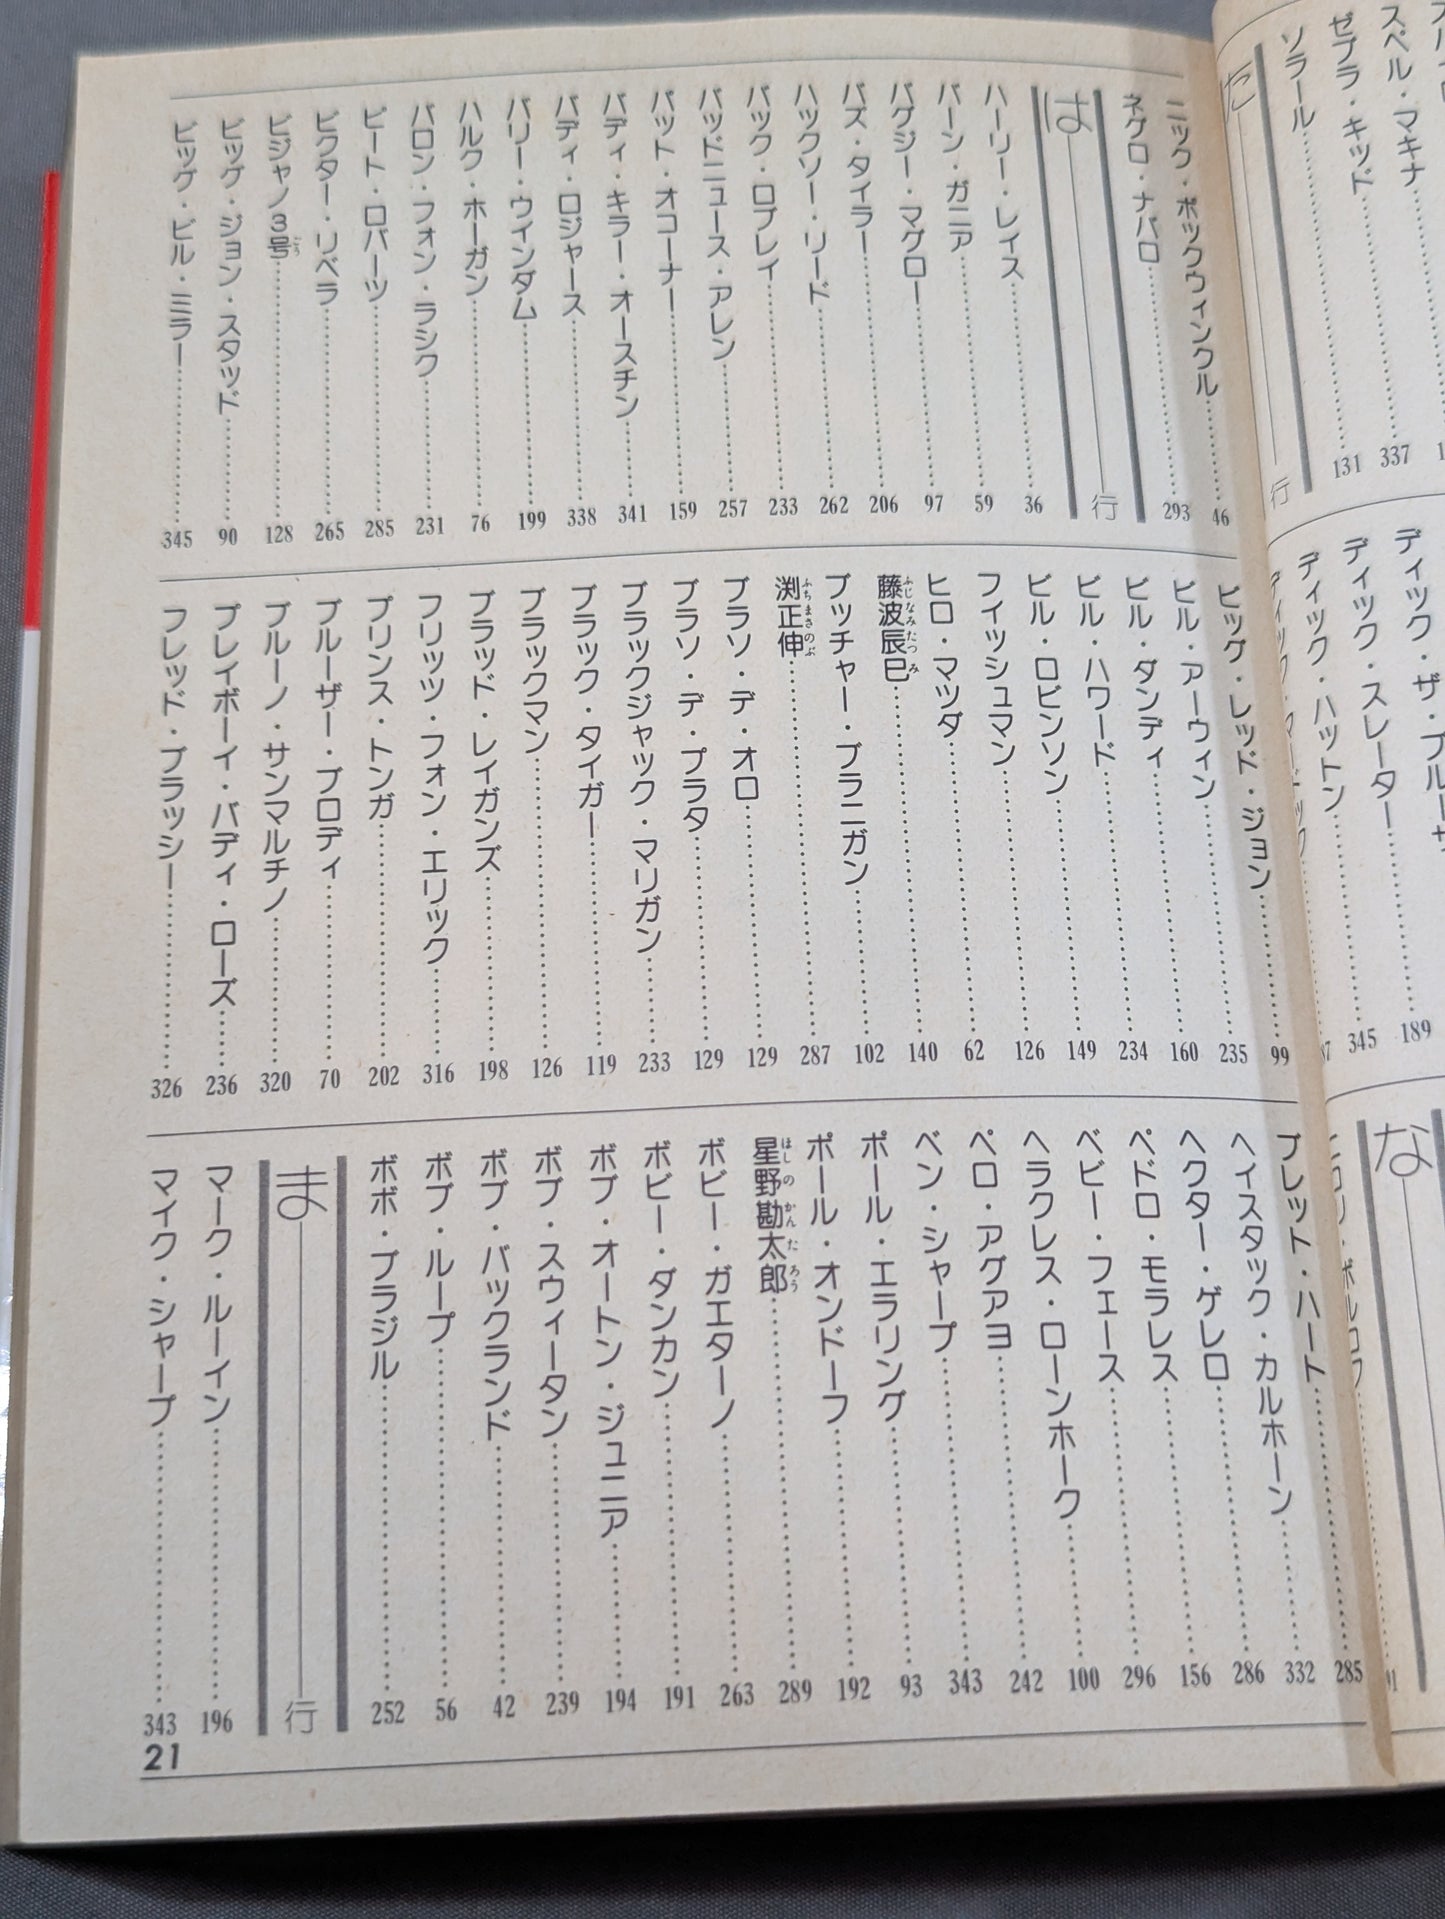 ニック・ボックウィンクル 46
ネグロ・ナバロ 293
は行
ハーリー・レイス 36
バーン・ガニア 59
バグジー・マグロー 97
バズ・タイラー 206
ハックソー・リード 262
バック・ロブレイ 233
バッドニュース・アレン 257
パット・オコーナー 159
バディ・キラー・オースチン 341
バディ・ロジャース 338
バリー・ウインダム 199
ハルク・ホーガン 76
バロン・フォン・ラシク 231
ピート・ロバーツ 285
ビクター・リベラ 265
ビジャノ3号 128
ビッグ・ジョン・スタッド 90
ビッグ・ビル・ミラー 345
ビッグ・レッド・ジョン 99
ビル・アーウィン 235
ビル・ダンディ 160
ビル・ハワード 234
ビル・ロビンソン 149
フィッシュマン 126
ヒロ・マツダ 62
藤波辰巳 140
ブッチャー・ブラニガン 102
渕正伸 287
ブラソ・デ・オロ 129
ブラソ・デ・プラタ 129
ブラックジャック・マリガン 233
ブラック・タイガー 119
ブラックマン 126
ブラッド・レイガンズ 198
フリッツ・フォン・エリック 316
プリンス・トンガ 202
ブルーザー・ブロディ 70
ブルーノ・サンマルチノ 320
プレイボーイ・バディ・ローズ 236
フレッド・ブラッシー 326
ブレット・ハート 285
ヘイスタック・カルホーン 332
ヘクター・ゲレロ 286
ペドロ・モラレス 156
ベビー・フェース 296
ヘラクレス・ローンホーク 100
ペロ・アグアヨ 242
ベン・シャープ 343
ポール・エラリング 93
ポール・オンドーフ 192
星野勘太郎 289
ボビー・ガエターノ 263
ボビー・ダンカン 191
ボブ・オートン・ジュニア 194
ボブ・スウィータン 239
ボブ・バックランド 42
ボブ・ループ 56
ボボ・ブラジル 252
ま行
マーク・ルーイン 196
マイク・シャープ 343
21
スペル・マキナ 337
ゼブラ・キッド 131
ソラール
た行
ディック・ザ・ブルーザ 189
ディック・スレーター 345
ディック・ハットン
な